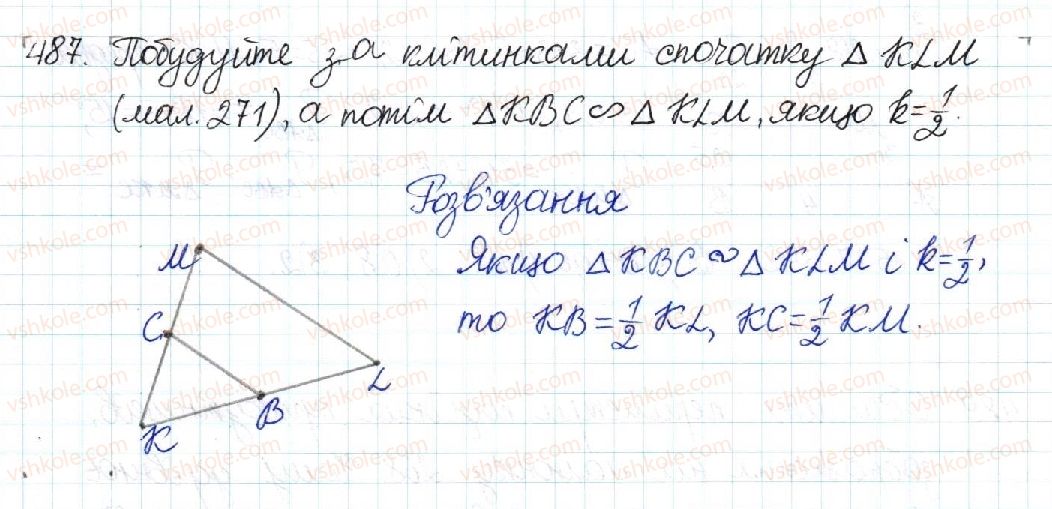 487. Побудуйте за клітинками спочатку △ KLM
(мал. 271), а потім △KBC ∽ △ KLM, якщо k=1/2.
Розв'язання
Якщо △ KBC ∽ △ KLM і k=1/2,
то KB = 1/2 KL, KC = 1/2 KM.
M
C
L
B
K
vshkole.com